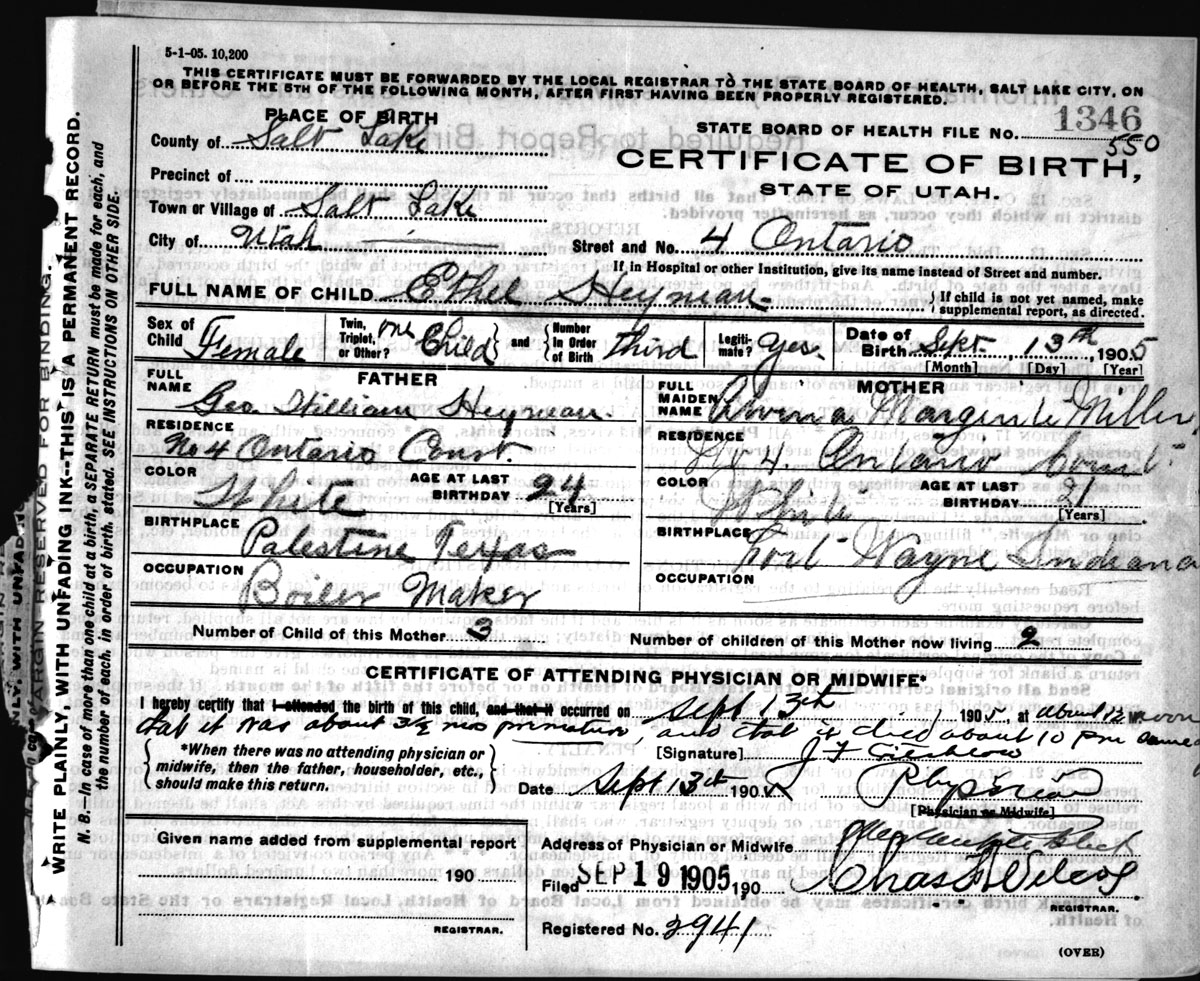 5-1-05. 10,200
THIS CERTIFICATE MUST BE FORWARDED BY THE LOCAL REGISTRAR TO THE STATE BOARD OF HEALTH, SALT LAKE CITY, ON
OR BEFORE THE 5TH OF THE FOLLOWING MONTH, AFTER FIRST HAVING BEEN PROPERLY REGISTERED.
PLACE OF BIRTH
STATE BOARD OF HEALTH FILE NO. 1346
550
County of Salt Lake
CERTIFICATE OF BIRTH,
STATE OF UTAH.
Precinct of
Town or Village of Salt Lake
City of Utah
Street and No. 4 Ontario
If in Hospital or other Institution, give its name instead of Street and number.
FULL NAME OF CHILD Ethel Heyman
If child is not yet named, make
supplemental report, as directed.
Sex of Child Female
Twin, Triplet, or Other? one Child and Number In Order of Birth third
Legitimate? Yes.
Date of Birth Sept. 13th, 1905
[Month] [Day] [Year]
FATHER
FULL NAME Geo. William Heyman
RESIDENCE No 4 Ontario Court.
COLOR White
AGE AT LAST BIRTHDAY 24
[Years]
BIRTHPLACE Palestine Texas
OCCUPATION Boiler Maker
MOTHER
FULL MAIDEN NAME Marguerite Miller
RESIDENCE No 4 Ontario Court
COLOR White
AGE AT LAST BIRTHDAY 21
[Years]
BIRTHPLACE Fort Wayne Indiana
OCCUPATION
Number of Child of this Mother 3
Number of children of this Mother now living 2
CERTIFICATE OF ATTENDING PHYSICIAN OR MIDWIFE*
I hereby certify that I attended the birth of this child, and that it occurred on Sept 13th 1905, at about 12 noon
that it was about 3½ mos premature, and that it died about 10 pm same
*When there was no attending physician or
midwife, then the father, householder, etc.,
should make this return.
[Signature] J F
Date Sept 13th 190
Physician
[Physician or Midwife]
Given name added from supplemental report
190
REGISTRAR.
Address of Physician or Midwife
Filed SEP 19 1905 190
Chas Wilcox
REGISTRAR.
Registered No. 2941
(OVER)
MARGIN RESERVED FOR BINDING.
WRITE PLAINLY, WITH UNFADING INK--THIS IS A PERMANENT RECORD.
N. B.--In case of more than one child at a birth, a SEPARATE RETURN must be made for each, and
the number of each, in order of birth, stated. SEE INSTRUCTIONS ON OTHER SIDE.